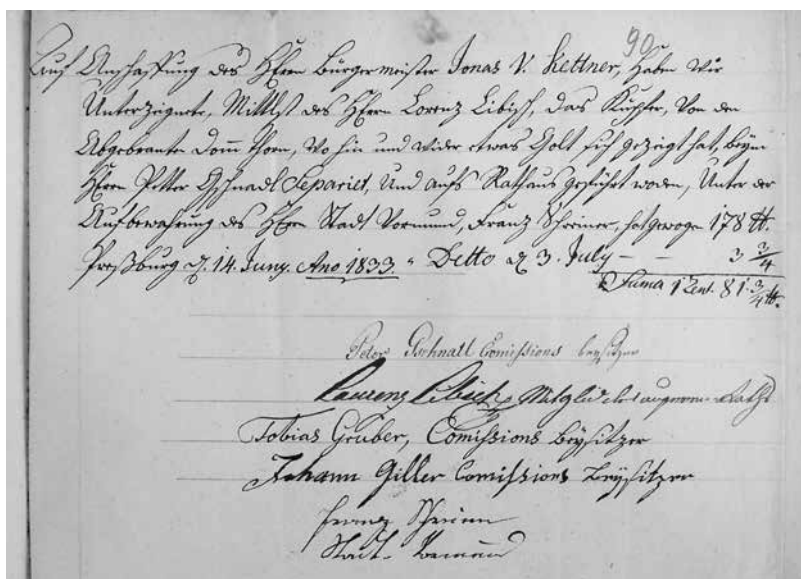 90
Auf Anschaffung des Hfren bürgermeister Jonas V. Kettner, Haben Wir
Unterzeignete, Mittelst des Hfren Lorenz Libisch, das Kupfer, Von den
Abgebranten Dom thorn, Wo hin und wider etwas Golt sich gezeigt hat, beym
Hfren Petter Gschnadl Separiet, Und aufs Rathaus geführt woden, Unter der
Aufbewahrung des Hfren Stadt Vormund, Franz Schreiner, hat gewogen 178 ℔.
Preßburg d. 14. Juny. Ano 1833. " Detto d 3. July - - 3 3/4
Suma 1 Zent. 81. 3/4 ℔.
Peter Gschnall Comissions beysitzer
Laurenz Libisch, Mitglid des Raths
Tobias Gruber, Comissions Beysitzer
Johann Giller Comissions Beysitzer
Franz Schreiner
Stadt-Vormund